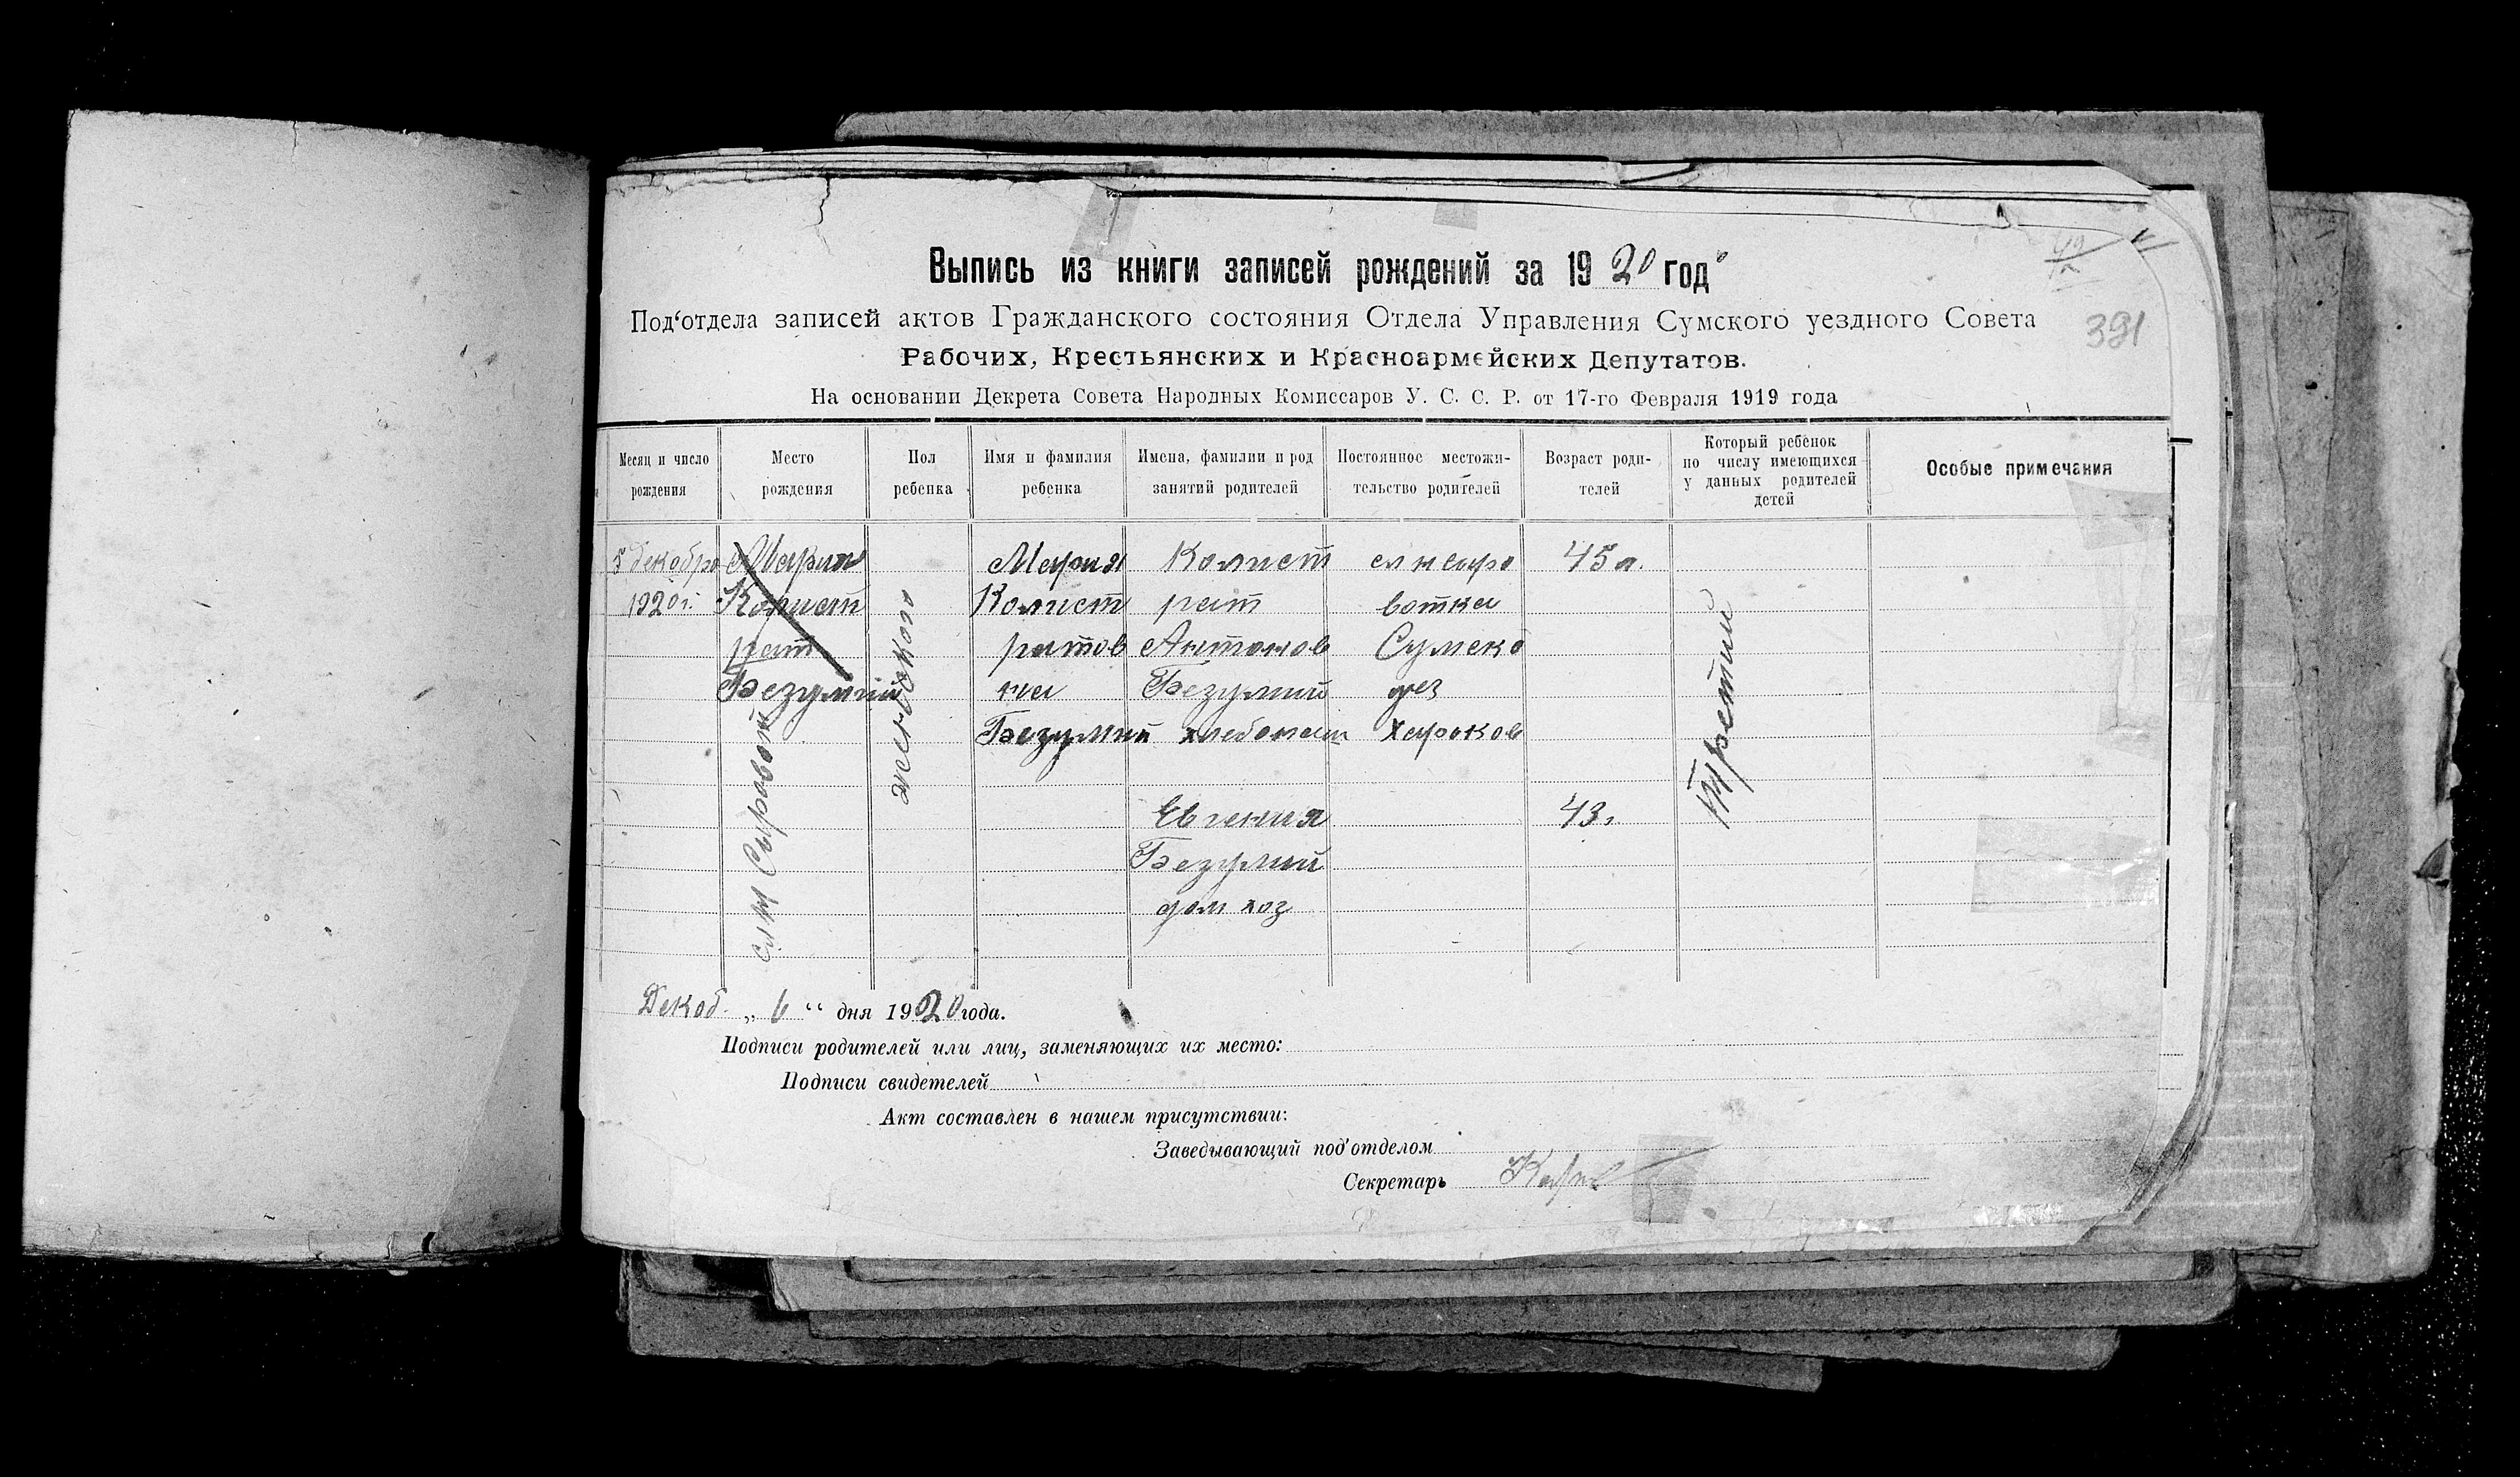 Выпись из книги записей рождений за 1920 год
Под‘отдела записей актов Гражданского состояния Отдела Управления Сумского уездного Совета
391
Рабочих, Крестьянских и Красноармейских Депутатов.
На основании Декрета Совета Народных Комиссаров У. С. С. Р. от 17-го Февраля 1919 года
Месяц и число рождения
Место рождения
Пол ребенка
Имя и фамилия ребенка
Имена, фамилии и род занятий родителей
Постоянное местожи-
тельство родителей
Возраст роди-
телей
Который ребенок
по числу имеющихся
у данных родителей
детей
Особые примечания
5 декабра
1920 г.
Мария
Колист
рат
Безумний
Сыроват
женского
Мария
Колист
ратов
на
Безумний
Колист
рат
Антонов
Безумний
хлебопаш
Евгения
Безумний
дом хоз
сл н сыро
ватка
Сумско
уез
Харьков
45 л.
43.
Третий
Декаб. „ 6 “ дня 1920 года.
Подписи родителей или лиц, заменяющих их место:
Подписи свидетелей
Акт составлен в нашем присутствии:
Заведывающий под‘отделом
Секретарь